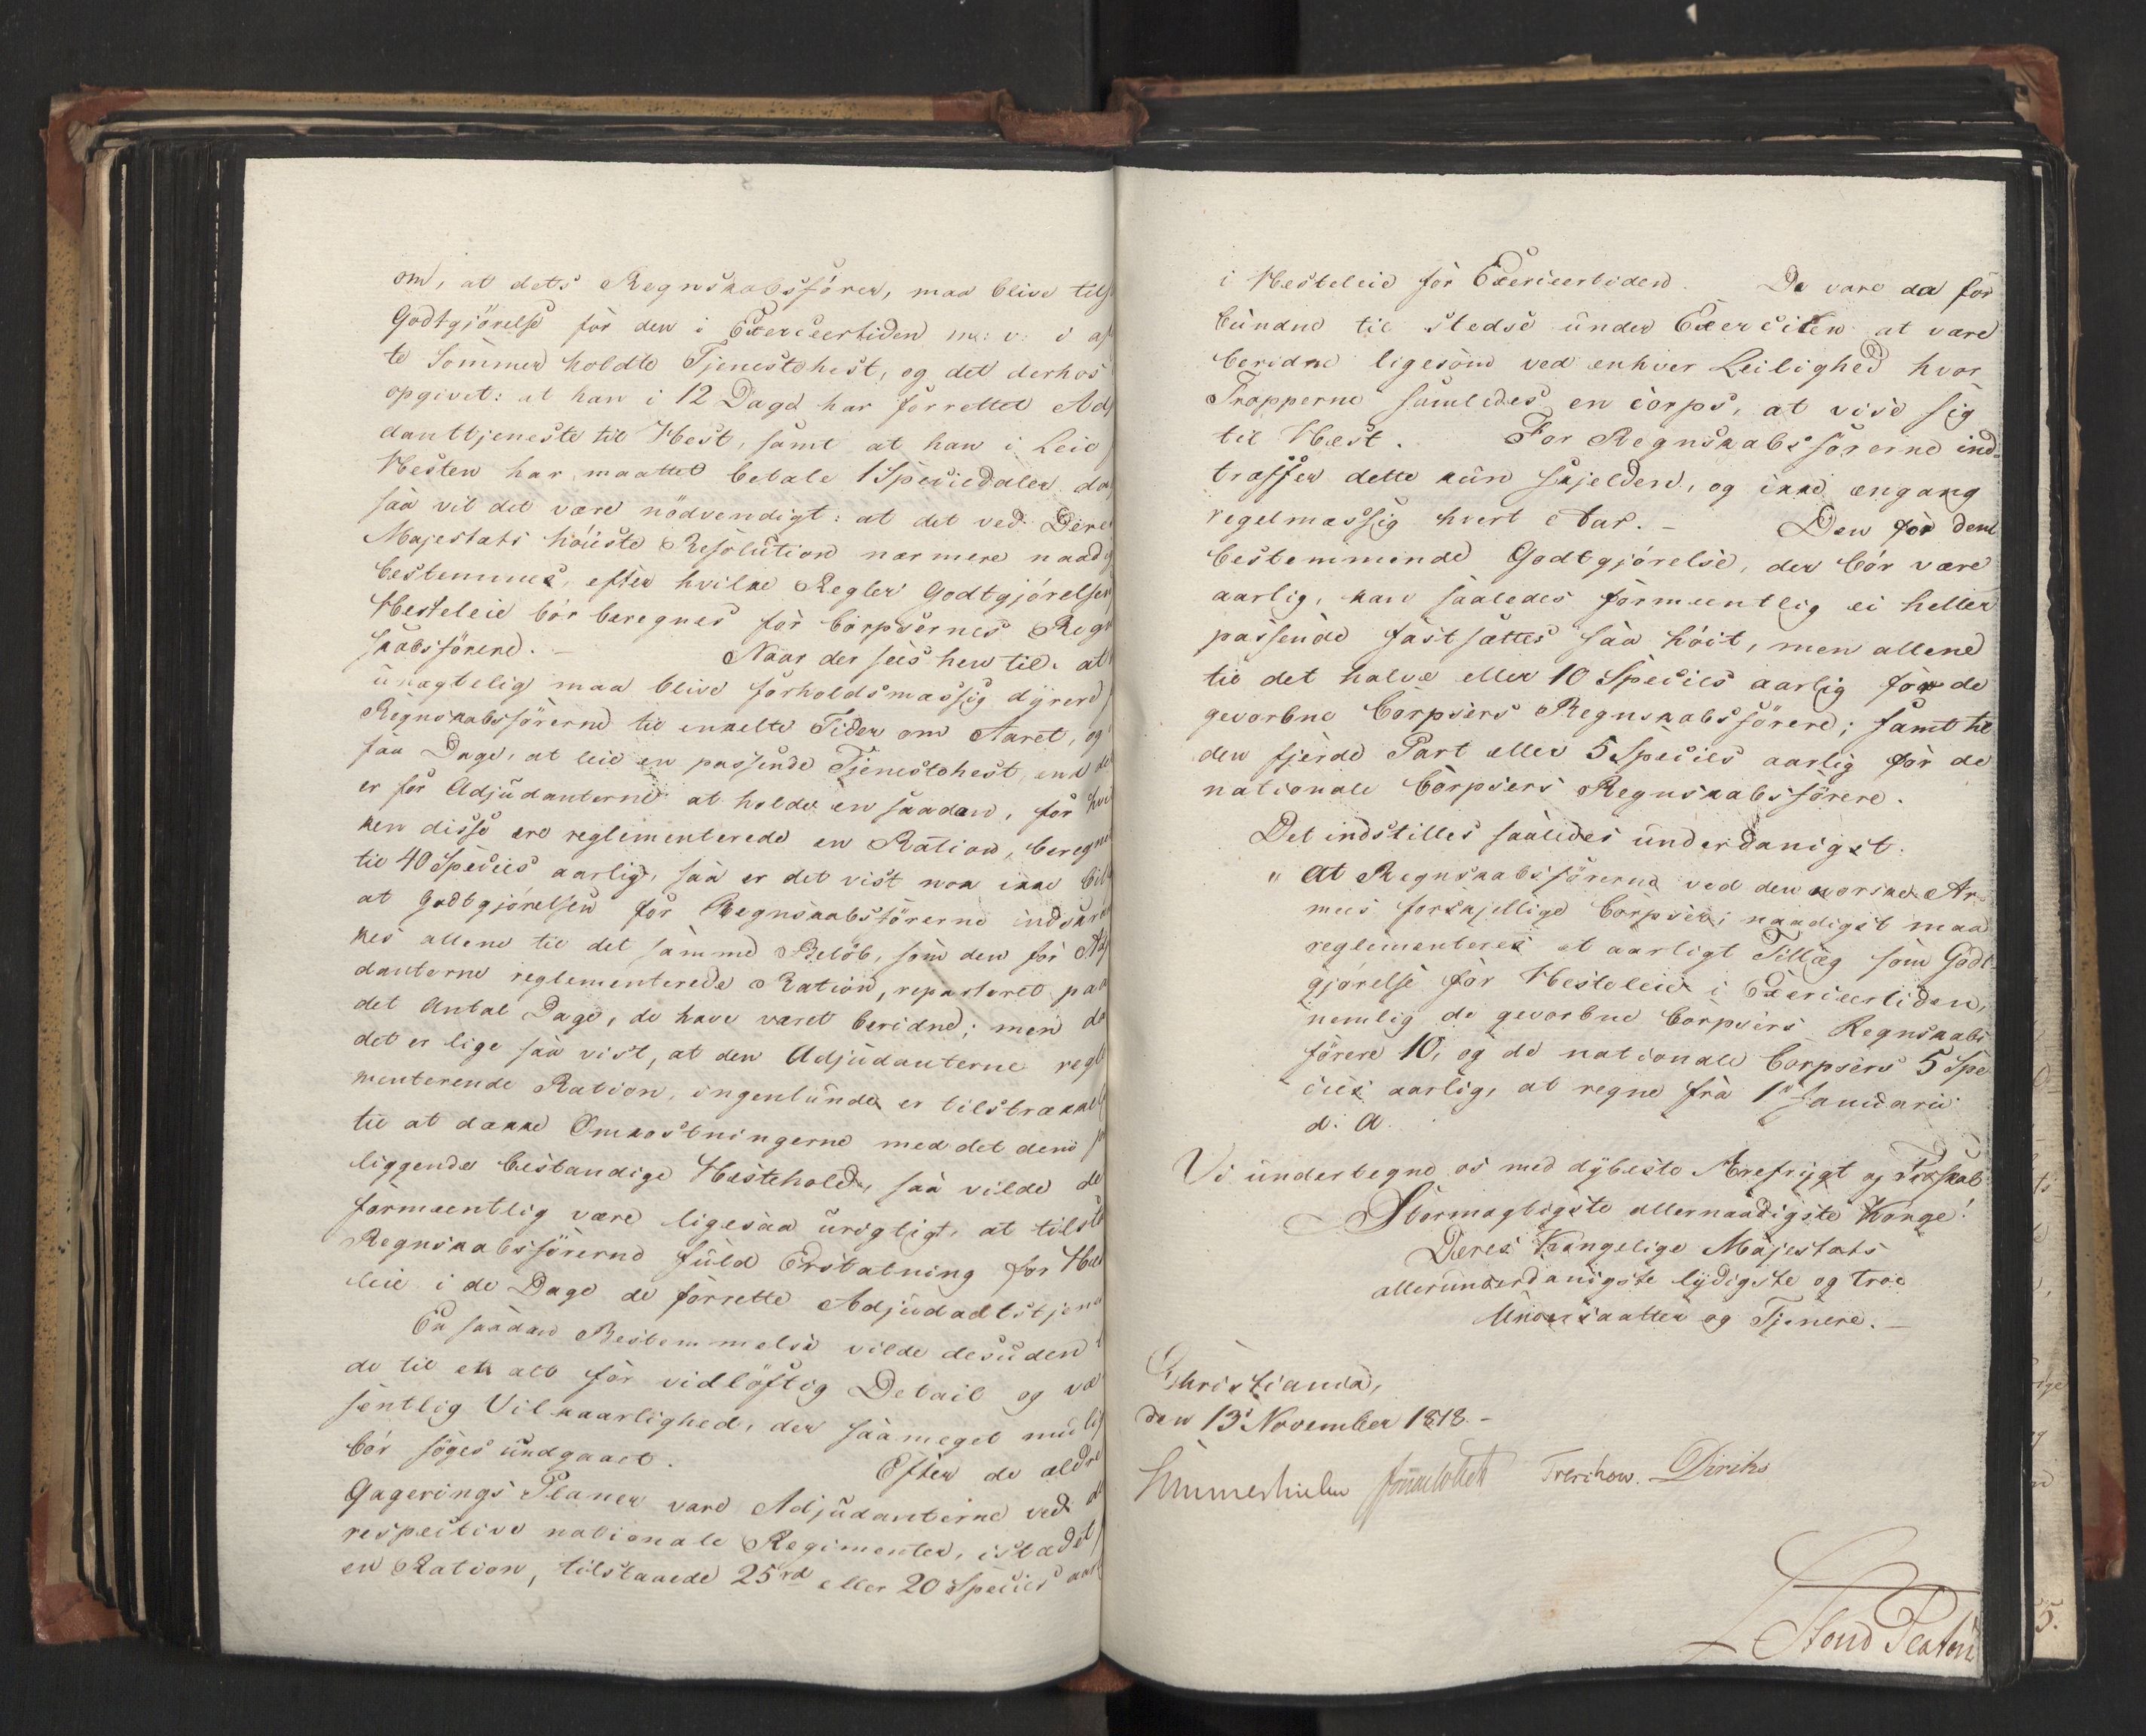 om, at dets Regnskabsfører, maa blive tilst
Godtgjörelse för den i Exerceertiden m: v: i af
te Sommer holdte Tjenestehest, og det derhos
opgivet: at han i 12 Dage har forrettet Adj
danttjeneste til Hest, samt at han i Leie
Hesten har maattet betale 1 Speciedaler da
saa vil det være nödvendigt: at det ved Dere
Majestæts höieste Resolution nærmere naadig
bestemmes, efter hvilke Regler Godtgjörelsen
Hesteleie bör beregnes för Corpsernes Regn
skabsförere. – Naar der sees hen til: at
unægtelig maa blive forholdsmæssig dyrere
Regnskabsförerne til enkelte Tider om Aaret, og
faa Dage, at leie en passende Tjenestehest, end de
er för Adjudanterne at holde en saadan, för hvil
ken disse ere reglementerede en Ration, beregnet
til 40 Species aarlig, saa er det vist nok ikke bil
at Godtgjörelsen för Regnskabsförerne indskræn
kes allene til det samme Belöb, som den för Adj
danterne reglementerede Ration, reparteret paa
det Antal Dage, de have været beridne; men da
det er lige saa vist, at den Adjudanterne regle
menterende Ration, ingenlunde er tilstrækkel
til at dække Omkostningerne med det dem
liggende bestandige Hestehold, saa vilde de
formeentlig være ligesaa urigtigt, at tilstå
Regnskabsförerne fuld Erstatning for Hest
leie i de Dage de forrette Adjudantstjene
En saadan Bestemmelse vilde desuden
de til en alt för vidlöftig Detail og væ
sentlig Vilkaarlighed, der saameget mulig
bör söges undgaaet. Efter de ældre
Gagerings Planer vare Adjudanterne ved d
respective nationale Regimenter, istædet
en Ration, tilstaaede 25 rd eller 20 Species aarl
i Hesteleie för Exerceertiden. De vare da for
bundne til stedse under Exercitien at være
beridne ligesom ved enhver Leilighed hvor
Tropperne samledes en corps, at vise sig
til Hest. For Regnskabsförerne ind
træffer dette kun sjelden, og ikke engang
regelmæssig hvert Aar. – Den for dem
bestemmende Godtgjörelse, der bör være
aarlig, kan saaledes formeentlig ei heller
passende fastsættes saa höit, men allene
til det halve eller 10 Species aarlig for de
gevorbne Corpsers Regnskabsförere; samt til
den fjerde Part eller 5 Species aarlig för de
nationale Corpsers Regnskabsförere.
Det indstilles saaledes underdanigst:
" At Regnskabsförerne ved den norske Ar
mees forskjellige Corpser, naadigst maa
reglementeres et aarligt Tillæg som Godt
gjörelse for Hesteleie i Exerceertiden,
nemlig de gevorbne Corpsers Regnskabs
förere 10, og de nationale Corpsers 5 Spe
cies aarlig, at regne fra 1ste Januarii
d: A.
Vi undertegne os med dybeste Ærefrygt og Troskab
Stormægtigste allernaadigste Konge!
Deres Kongelige Majestæts
allerunderdanigste lydigste og troe
Undersaatter og Tjenere. –
Christiania,
den 13de November 1818. –
Hummerhielm Sommerfeldt Treschow. Diriks
Stoud Platou